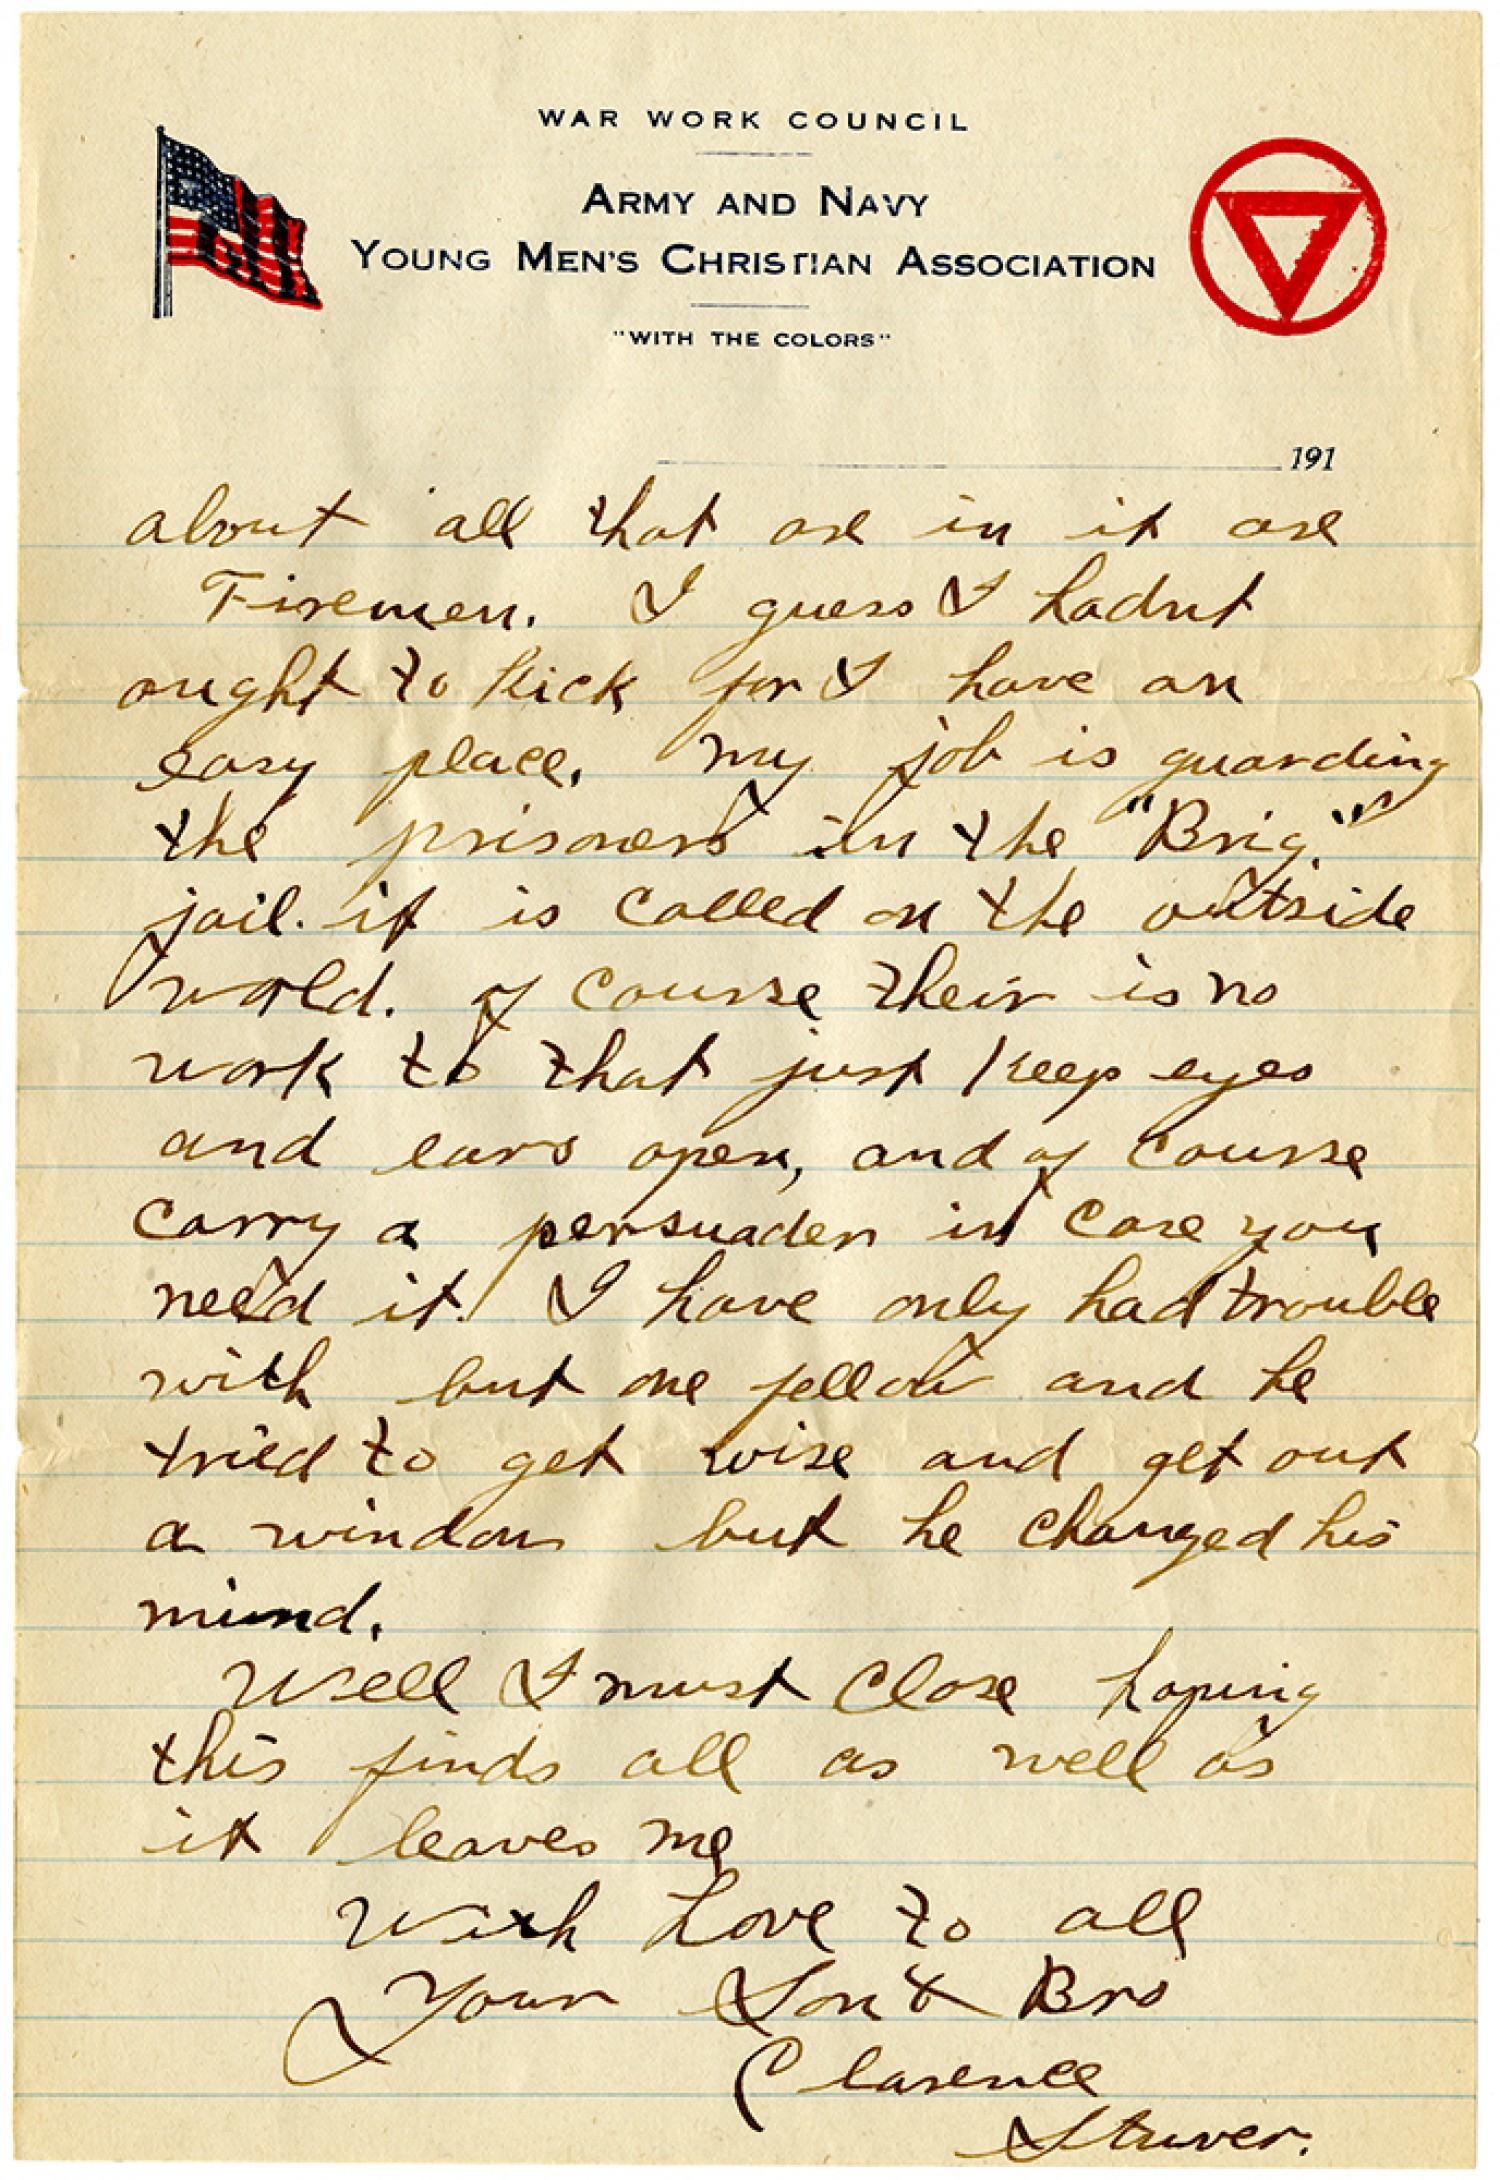 WAR WORK COUNCIL
ARMY AND NAVY
YOUNG MEN'S CHRISTIAN ASSOCIATION
"WITH THE COLORS"
191
about all that are in it are
Firemen. I guess I hadnt
ought to kick for I have an
easy place. my job is guarding
the prisoners in the "Brig."
jail. it is called on the outside
world. of course their is no
work to that just keep eyes
and ears open, and of course
carry a persuader in case you
need it. I have only had trouble
with but one fellow and he
tried to get wise and get out
a window but he changed his
mind.
Well I must close hoping
this finds all as well as
it leaves me
With Love to all
Your Son & Bro
Clarence
Struver.